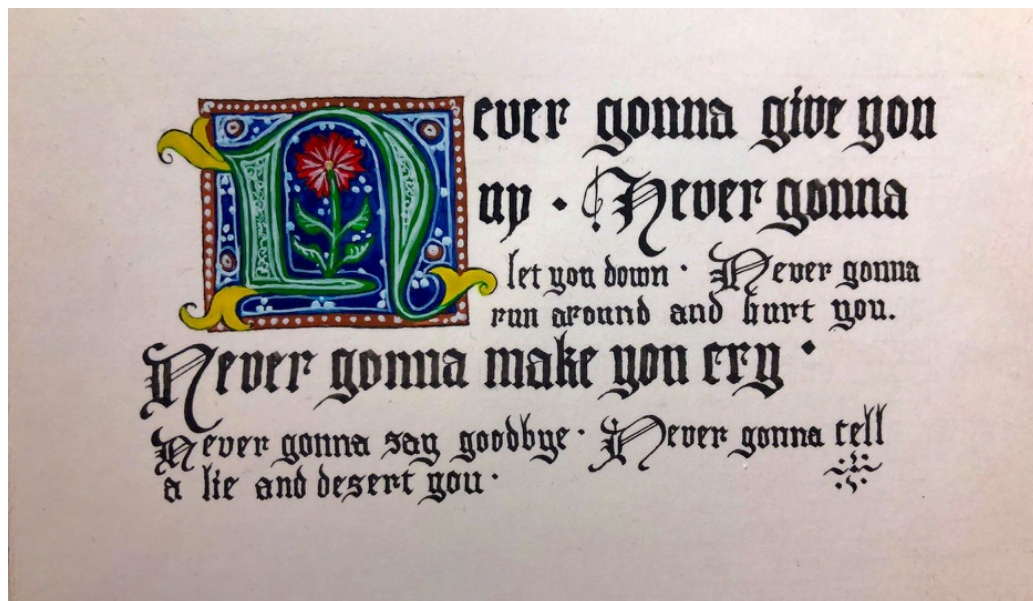 Never gonna give you
up · Never gonna
let you down · Never gonna
run around and hurt you.
Never gonna make you cry ·
Never gonna say goodbye · Never gonna tell
a lie and desert you ·